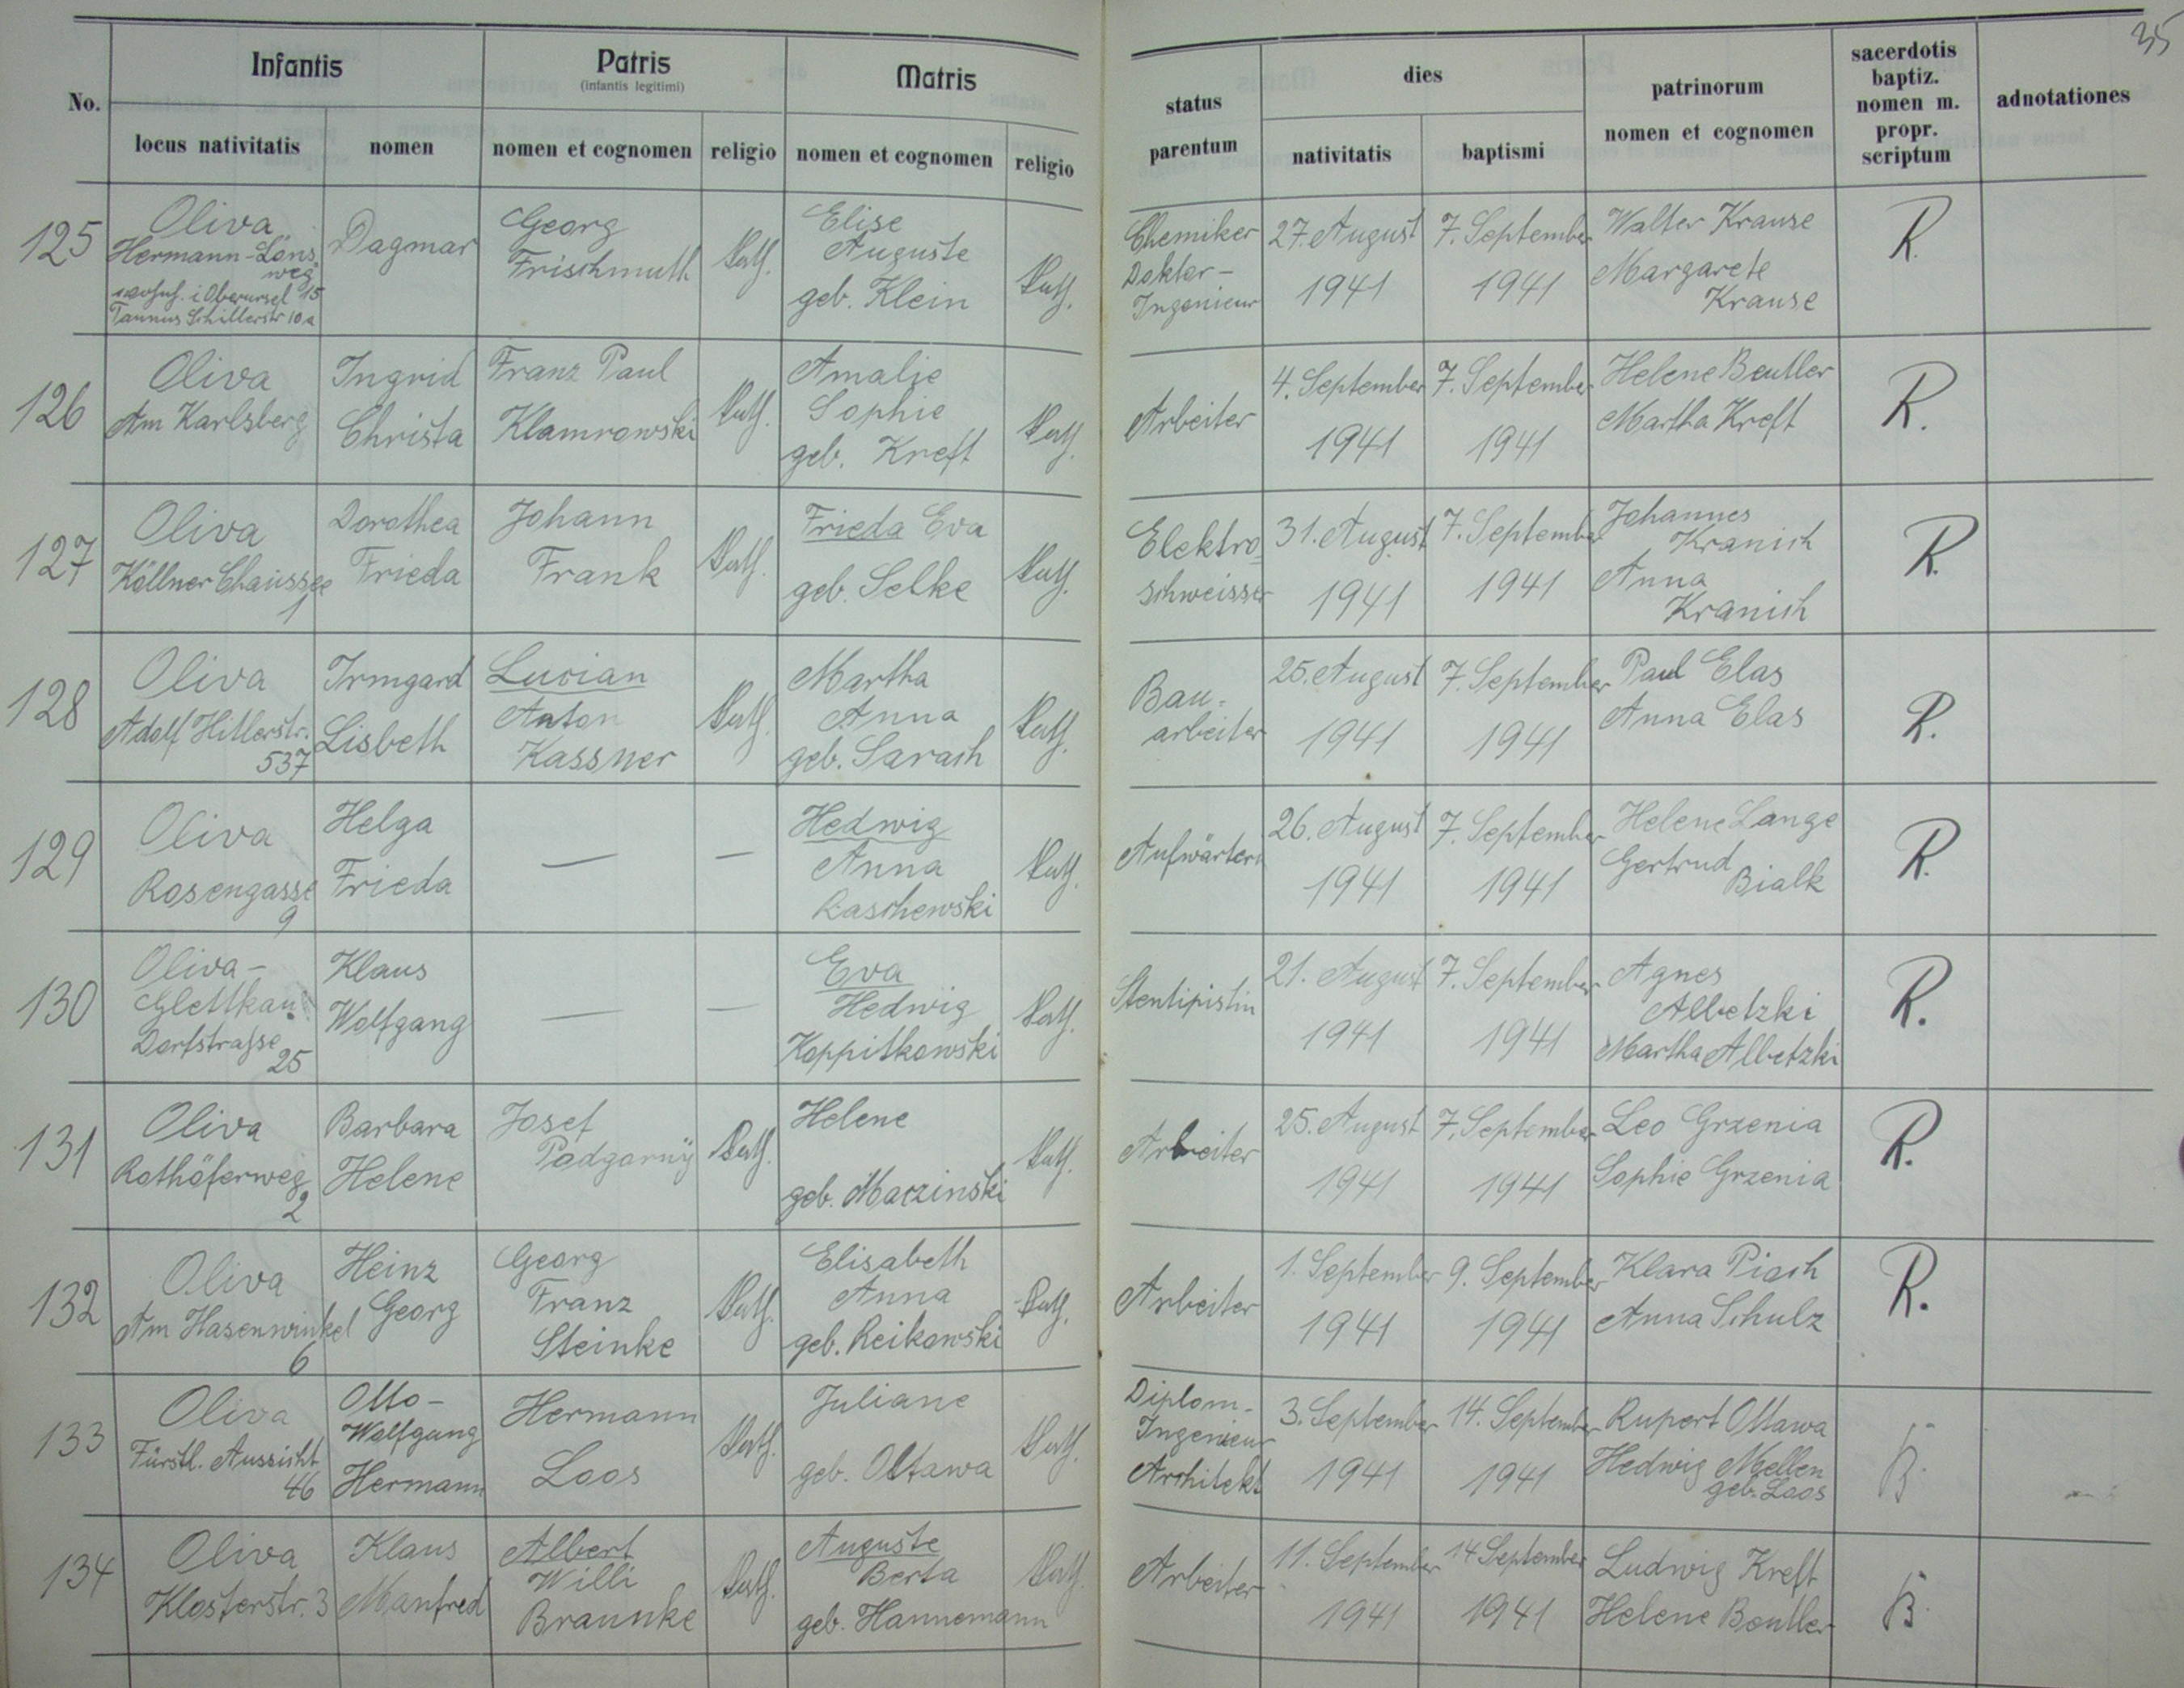 35
Infantis Patris Matris status dies patrinorum sacerdotis
(infantis legitimi) parentum nomen et cognomen baptiz.
No. nomen m. adnotationes
locus nativitatis nomen nomen et cognomen religio nomen et cognomen religio nativitatis baptismi propr.
scriptum
125 Oliva Dagmar Georg Kath. Elise Kath. Chemiker 27. August 7. September Walter Krause R.
Hermann-Löns- Frischmuth Auguste Doktor- 1941 1941 Margarete
weg geb. Klein Ingenieur Krause
wohnh. i. Oberursel 15
Taunus Schillerstr 10a
126 Oliva Ingrid Franz Paul Kath. Amalie Kath. Arbeiter 4. September 7. September Helene Beutler R.
Am Karlsberg Christa Klamrowski Sophie 1941 1941 Martha Kreft
geb. Kreft
127 Oliva Dorothea Johann Kath. Frieda Eva Kath. Elektro- 31. August 7. September Johannes R.
Köllner Chaussee Frieda Frank geb. Selke schweisser 1941 1941 Kranich
1 Anna
Kranich
128 Oliva Irmgard Lucian Kath. Martha Kath. Bau- 25. August 7. September Paul Elas R.
Adolf Hitlerstr. Lisbeth Anton Anna arbeiter 1941 1941 Anna Elas
537 Kassner geb. Sarach
129 Oliva Helga — — Hedwig Kath. Aufwärterin 26. August 7. September Helene Lange R.
Rosengasse Frieda Anna 1941 1941 Gertrud
9 Raschewski Bialk
130 Oliva- Klaus — — Eva Kath. Stentipistin 21. August 7. September Agnes R.
Glettkau Wolfgang Hedwig 1941 1941 Albetzki
Dorfstrasse Koppitkowski Martha Albetzki
25
131 Oliva Barbara Josef Kath. Helene Kath. Arbeiter 25. August 7. September Leo Grzenia R.
Rothöferweg Helene Podgornÿ geb. Maczinski 1941 1941 Sophie Grzenia
2
132 Oliva Heinz Georg Kath. Elisabeth Kath. Arbeiter 1. September 9. September Klara Piach R.
Am Hasenwinkel Georg Franz Anna 1941 1941 Anna Schulz
6 Steinke geb. Reikowski
133 Oliva Otto- Hermann Kath. Juliane Kath. Diplom- 3. September 14. September Rupert Ottawa B.
Fürstl. Aussicht Wolfgang Loos geb. Ottawa Ingenieur 1941 1941 Hedwig Mellen
46 Hermann Architekt geb. Loos
134 Oliva Klaus Albert Kath. Auguste Kath. Arbeiter 11. September 14 September Ludwig Kreft B.
Klosterstr. 3 Manfred Willi Berta 1941 1941 Helene Beutler
Braunke geb. Hannemann